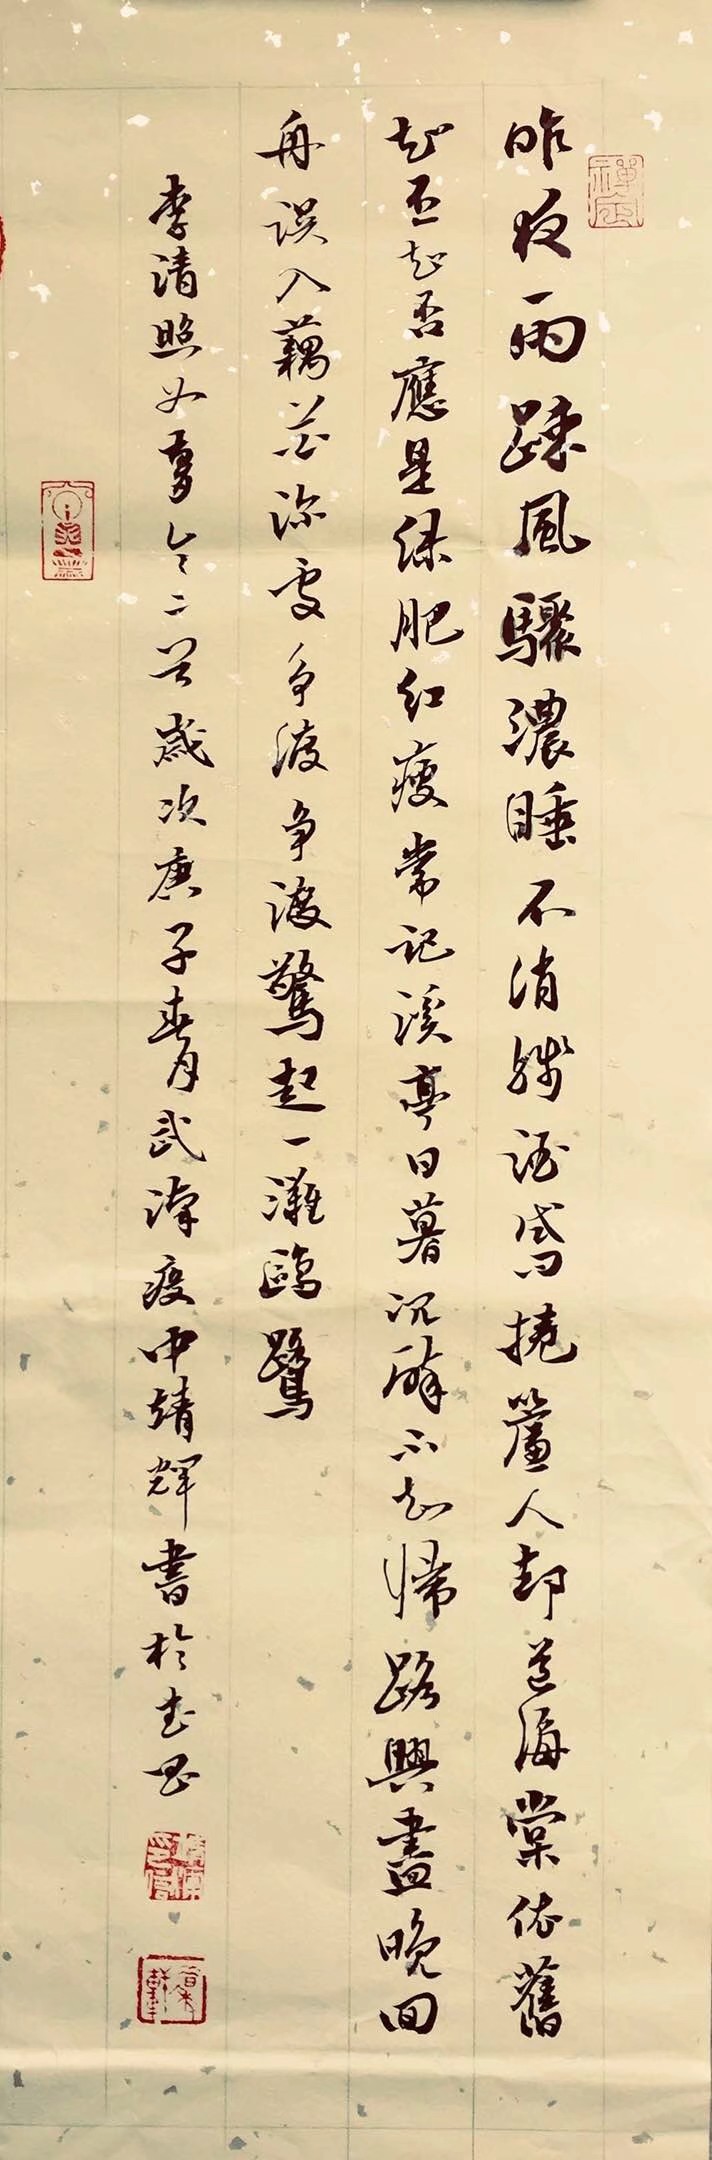 昨夜雨踈風驟濃睡不消殘酒試問捲簾人却道海棠依舊
知否知否應是綠肥紅瘦常記溪亭日暮沉醉不知歸路興盡晚回
舟误入藕花深處争渡争渡驚起一灘鷗鷺
李清照如夢令二首歲次庚子春月武漢疫中靖輝書於
禪